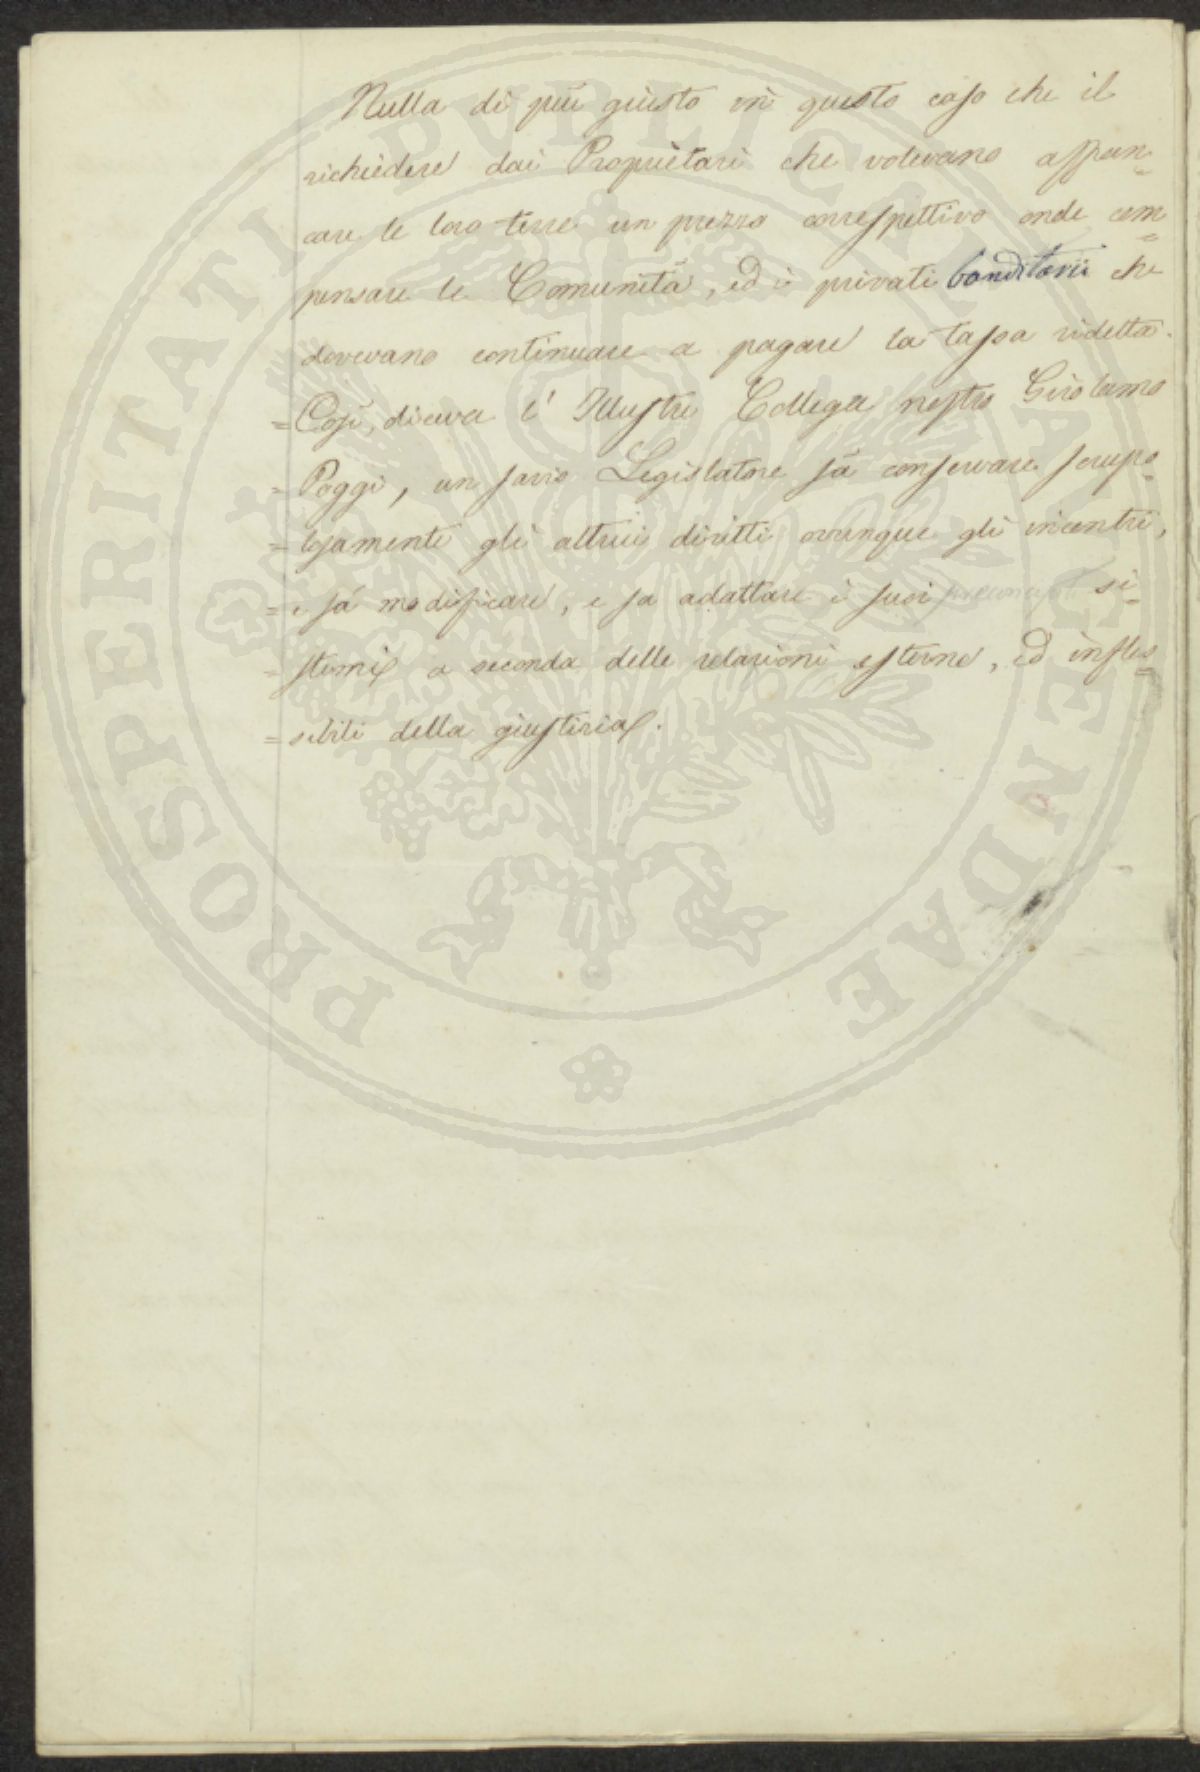 Nulla di più giusto in questo caso che il
richiedere dai Proprietari che volevano affran=
care le loro terre un prezzo correspettivo onde com=
pensare le Comunità, ed i privati banditarii che
dovevano continuare a pagare la tassa ridetta.
=Così, diceva l'Illustre Collega nostro Girolamo
=Poggi, un savio Legislatore sà conservare scrupo=
=losamente gli altrui diritti ovunque gli incontri,
=e sà modificare, e sa adattare i suoi si=
=stemi a seconda delle relazioni esterne, ed infles=
=sibili della giustizia.
PROSPERITATI PVBLICAE AVGENDAE